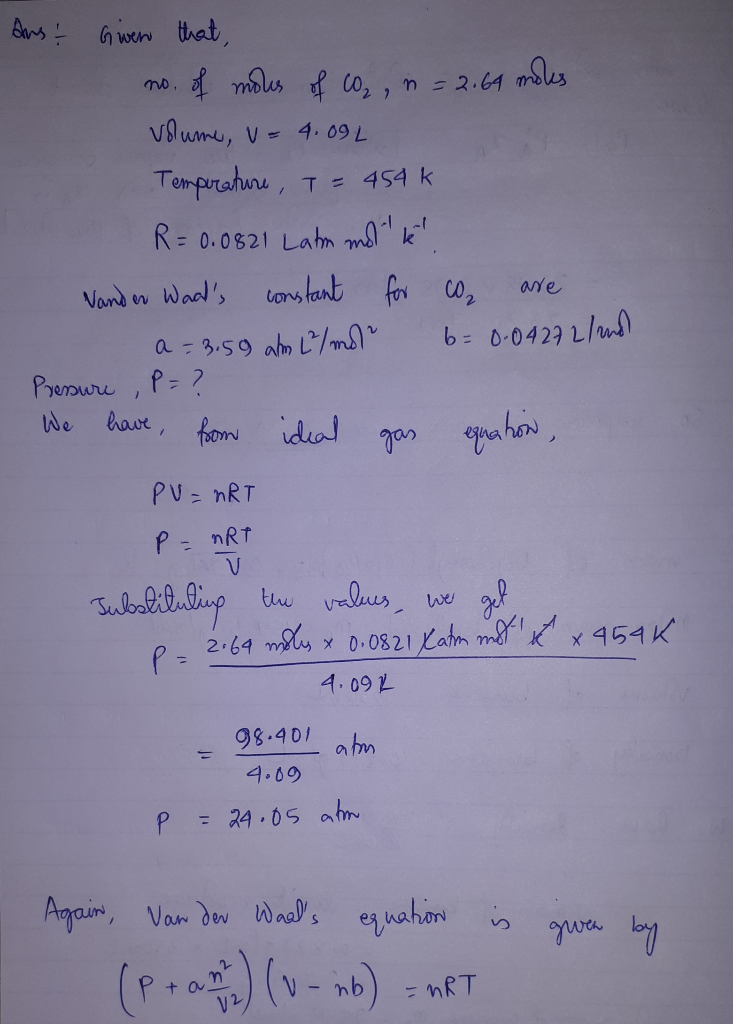 Ans :- Given that,
no. of moles of CO₂, n = 2.64 moles
Volume, V = 4.09 L
Temperature, T = 454 K
R = 0.0821 L atm mol⁻¹ K⁻¹.
Vander Waal's constant for CO₂ are
a = 3.59 atm L²/mol² b = 0.0427 L/mol
Pressure, P = ?
We have, from ideal gas equation,
PV = nRT
P = nRT/V
Substituting the values, we get
P = 2.64 moles x 0.0821 L atm mol⁻¹ K⁻¹ x 454 K / 4.09 L
= 98.401/4.09 atm
P = 24.05 atm
Again, Van der Waal's equation is given by
(P + a n²/V²) (V - nb) = nRT